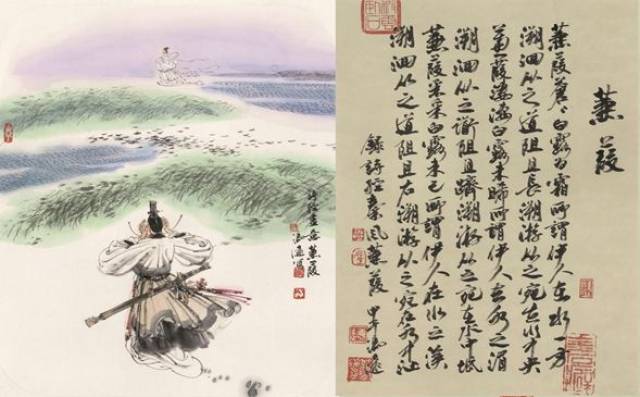 蒹葭
蒹葭蒼〻白露为霜所謂伊人在水一方
溯洄从之道阻且長溯游从之宛在水中央
蒹葭淒淒白露未晞所謂伊人在水之湄
溯洄从之道阻且躋溯游从之宛在水中坻
蒹葭采采白露未已所謂伊人在水之涘
溯洄从之道阻且右溯游从之宛在水中沚
錄詩经秦风蒹葭 甲午
詩经畫意蒹葭